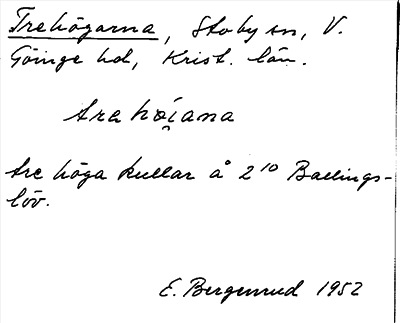 Trehögarna, Stoby sn, V.
Göinge hd, Krist. län.
tre höga kullar å 2¹⁰ Ballings-
löv.
E. Bergenrud 1952